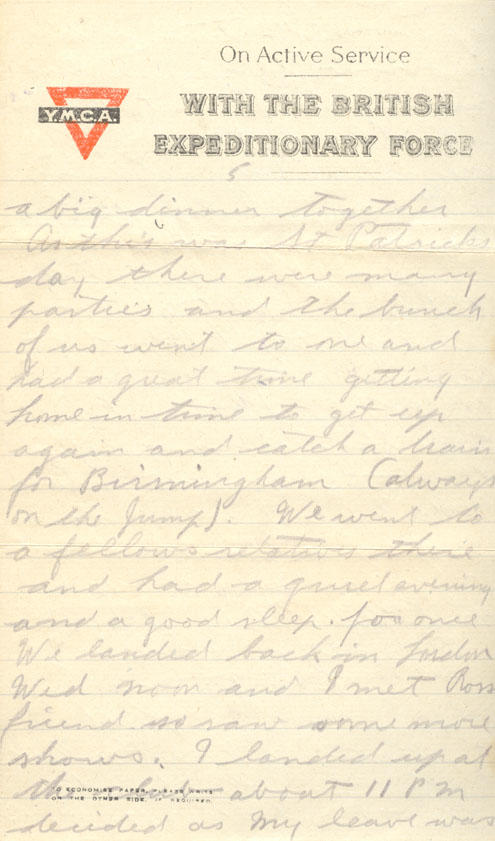 On Active Service
Y.M.C.A.
WITH THE BRITISH
EXPEDITIONARY FORCE
5
a big dinner together
As this was St Patricks
day there were many
parties and the bunch
of us went to one and
had a great time getting
home in time to get up
again and catch a train
for Birmingham (always
on the jump). We went to
a fellows relatives there
and had a quiet evening
and a good sleep for once
We landed back in London
Wed noon and I met Ross
friend saw some more
shows. I landed up at
the about 11 P M
TO ECONOMISE PAPER, PLEASE WRITE
ON THE OTHER SIDE, IF REQUIRED.
decided as my leave was